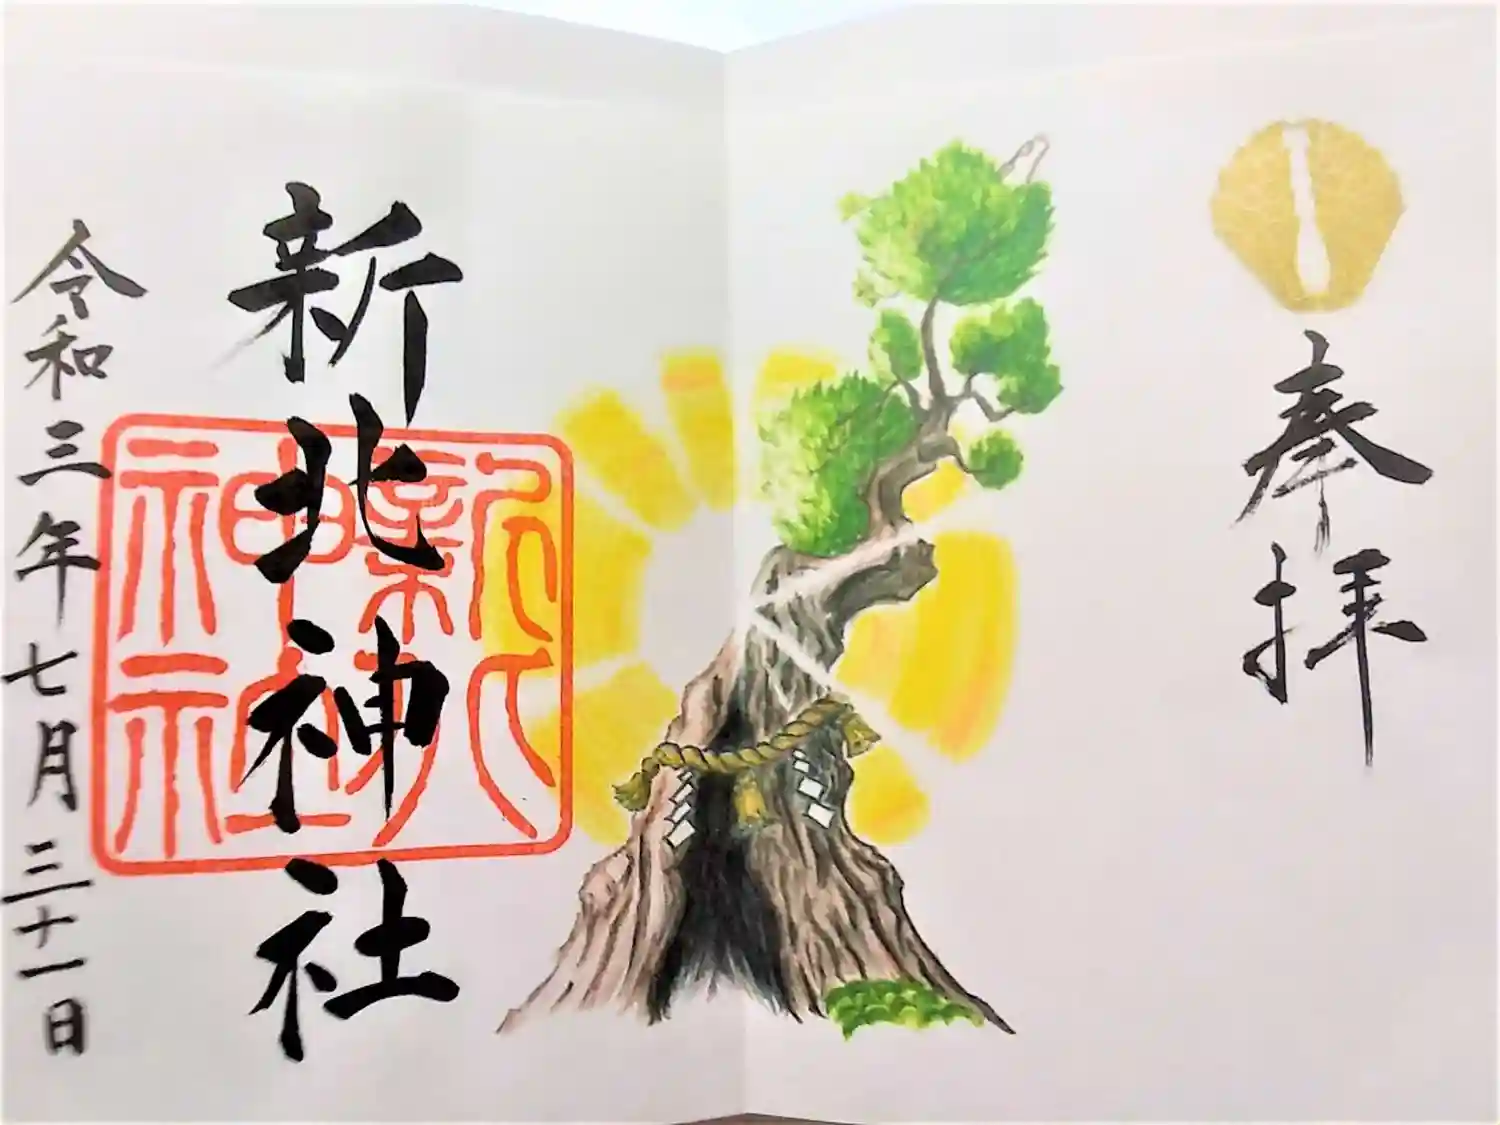 奉拝
新北神社
令和三年七月三十一日